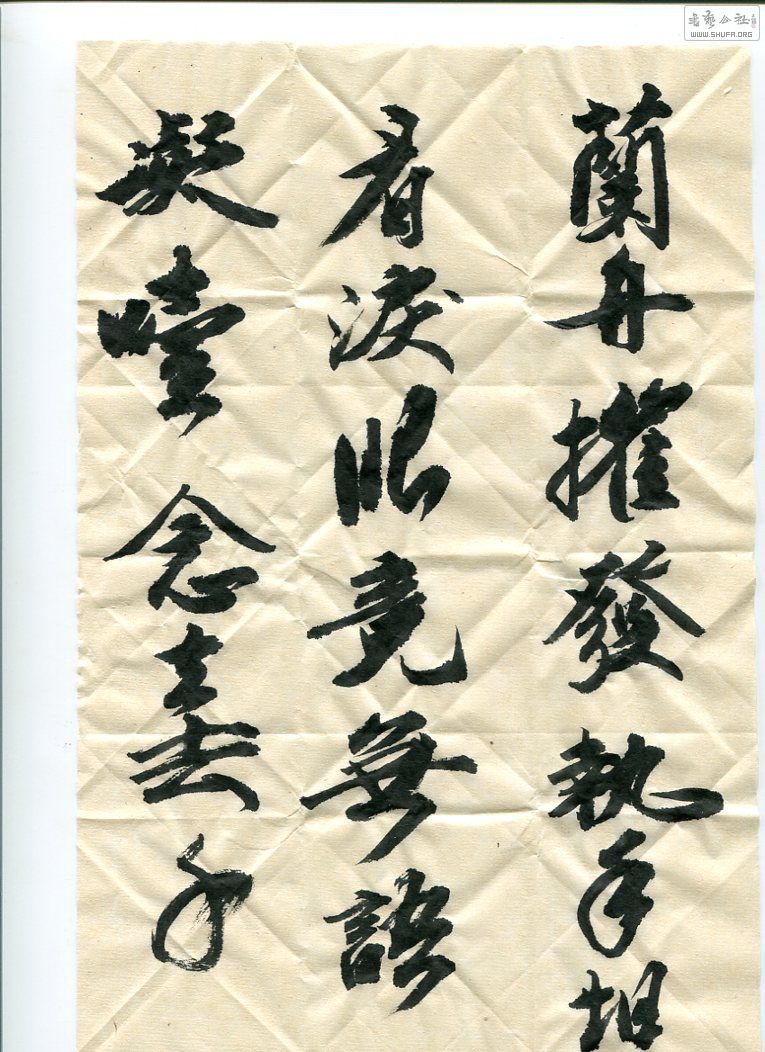 蘭舟摧發執手相
看淚眼竟無語
凝噎念去去千
書藝公社
WWW.SHUFA.ORG